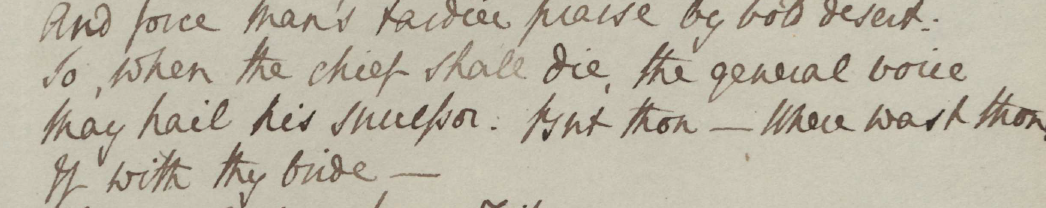 And force man's tardier praise by bold desert.
So, when the chief shall die, the general voice
May hail his successor. But thou — Where wast thou,
If with thy bride —